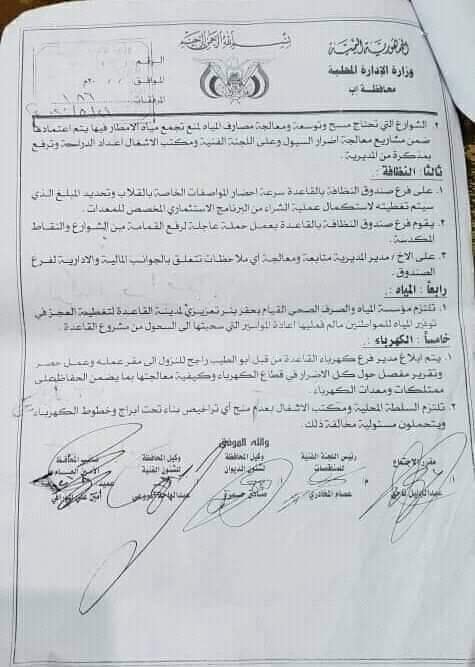 بسم الله الرحمن الرحيم
الجمهورية اليمنية
وزارة الإدارة المحلية
محافظة اب
الرقم
الموافق
المرفقات
٢. الشوارع التي تحتاج مسح وتوسعة ومعالجة مصارف المياه لمنع تجمع مياة الامطار فيها يتم اعتمادها
ضمن مشاريع معالجة اضرار السيول وعلى اللجنة الفنية ومكتب الاشغال اعداد الدراسة وترفع
بمذكرة من المديرية.
ثالثا: النظافة:
١. على فرع صندوق النظافة بالقاعدة سرعة احضار المواصفات الخاصة بالقلاب وتحديد المبلغ الذي
سيتم تغطيته لاستكمال عملية الشراء من البرنامج الاستثماري المخصص للمعدات.
٢. يقوم فرع صندوق النظافة بالقاعدة بعمل حملة عاجلة لرفع القمامة من الشوارع والنقاط
المكدسة.
٣. على الاخ / مدير المديرية متابعة ومعالجة أي ملاحظات تتعلق بالجوانب المالية والادارية لفرع
الصندوق.
رابعاً: المياه:
١. تلتزم مؤسسة المياه والصرف الصحي القيام بحفر بئر تعزيزي لمدينة القاعدة لتغطية العجز في
توفير المياه للمواطنين مالم فعليها اعادة المواسير التي سحبتها الى السحول من مشروع القاعدة.
خامساً: الكهرباء:
١. يتم ابلاغ مدير فرع كهرباء القاعدة من قبل ابو الطيب راجح للنزول الى مقر عمله وعمل حصر
وتقرير مفصل حول كل الاضرار في قطاع الكهرباء وكيفية معالجتها بما يضمن الحفاظ على
ممتلكات ومعدات الكهرباء.
٢. تلتزم السلطة المحلية ومكتب الاشغال بعدم منح أي تراخيص بناء تحت ابراج وخطوط الكهرباء
ويتحملون مسئولية مخالفة ذلك.
والله الموفق
مقرر الاجتماع
رئيس اللجنة الفنية
للمناقصات
وكيل المحافظة
لشئون الديوان
وكيل المحافظة
للشئون الفنية
المحافظة
الأمين العام
عصام
أمين علي الورافي